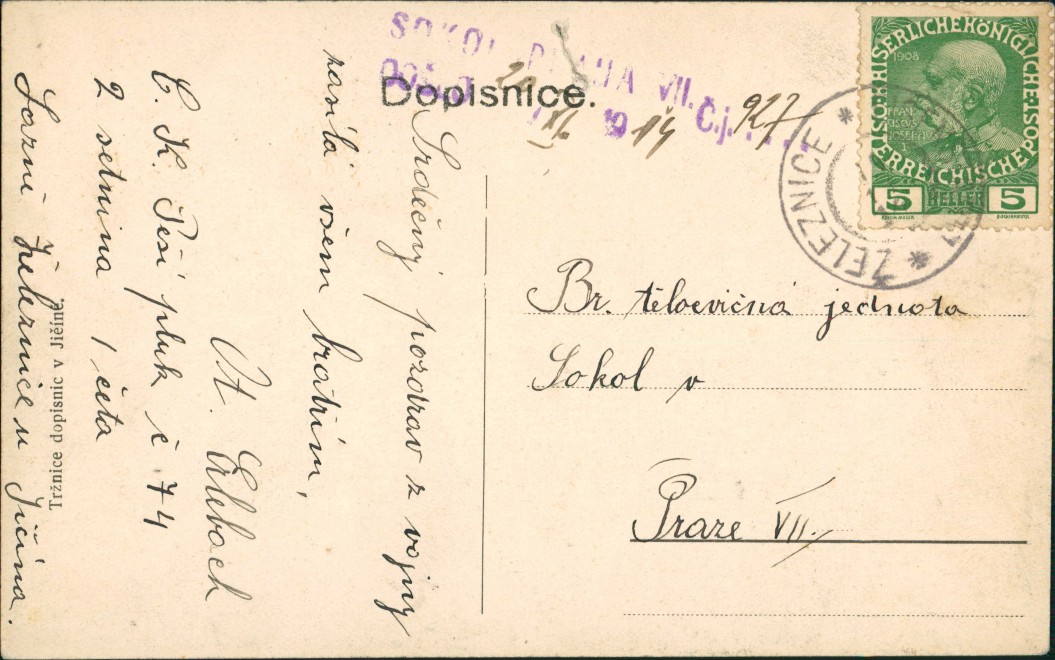 SOKOL PRAHA VII.
Došlo 2/XI. 1914 Č.j. 927
Dopisnice.
K.K. ÖSTERREICHISCHE POST
KAISERLICHE KÖNIGLICHE
1908
5 HELLER 5
ŽELEZNICE
Br. tělocvičná jednota
Sokol v
Praze VII.
Srdečný pozdrav z vojny
zasílá všem bratřím,
Ot. Erlebach
C. K. Peší pluk č 74
2 setnina 1 četa
Lázně Železnice u Jičína.
Tržnice dopisnic v Jičíně.